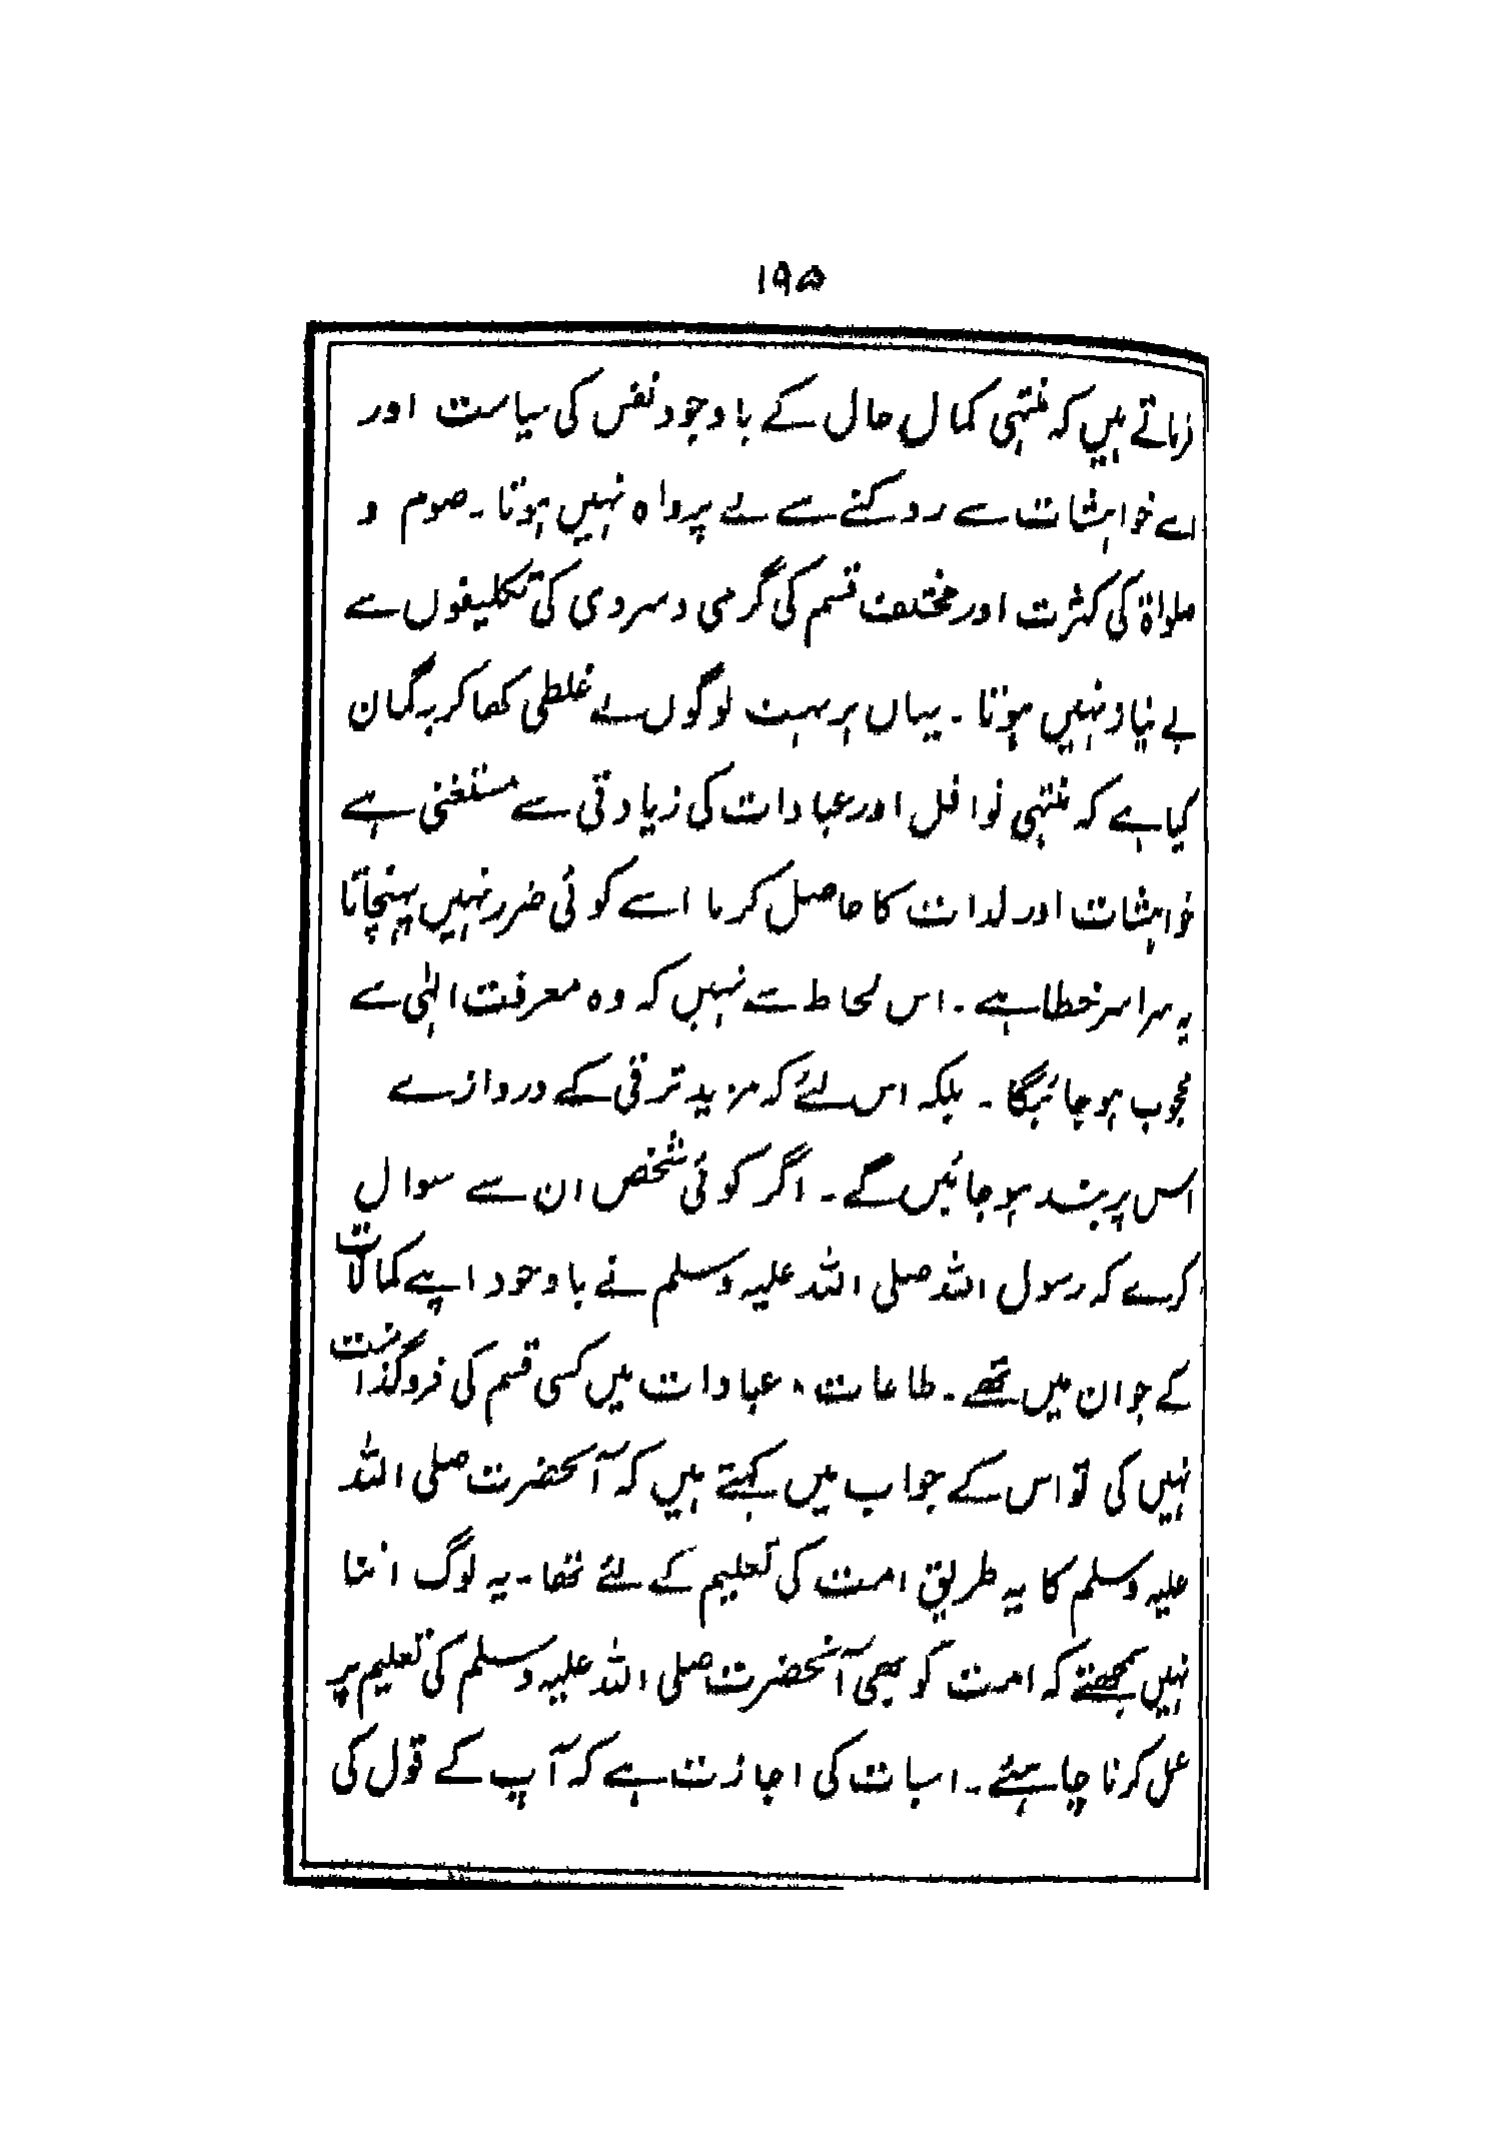 ۱۹۵
فرماتے ہیں کہ منتہی کمال حال کے باوجود نفس کی سیاست اور
اسے خواہشات سے روکنے سے بے پرواہ نہیں ہوتا۔ صوم و
صلواۃ کی کثرت اور مختلف قسم کی گرمی و سردی کی تکلیفوں سے
بے نیاز نہیں ہوتا۔ یہاں پر بہت لوگوں نے غلطی کھا کر یہ گمان
کیا ہے کہ منتہی نوافل اور عبادات کی زیادتی سے مستغنی ہے
خواہشات اور لذات کا حاصل کرنا اسے کوئی ضرر نہیں پہنچاتا
یہ سراسر خطا ہے۔ اس لحاظ سے نہیں کہ وہ معرفت الٰہی سے
محجوب ہو جائیگا۔ بلکہ اس لئے کہ مزید ترقی کے دروازے
اس پر بند ہو جائیں گے۔ اگر کوئی شخص ان سے سوال
کرے کہ رسول اللہ صلی اللہ علیہ وسلم نے باوجود اپنے کمالات
کے جو ان میں تھے۔ طاعات و عبادات میں کسی قسم کی فروگذاشت
نہیں کی تو اس کے جواب میں کہتے ہیں کہ آنحضرت صلی اللہ
علیہ وسلم کا یہ طریق امت کی تعلیم کے لئے تھا۔ یہ لوگ اتنا
نہیں سمجھتے کہ امت کو بھی آنحضرت صلی اللہ علیہ وسلم کی تعلیم پر
عمل کرنا چاہیئے۔ اسبات کی اجازت ہے کہ آپ کے قول کی